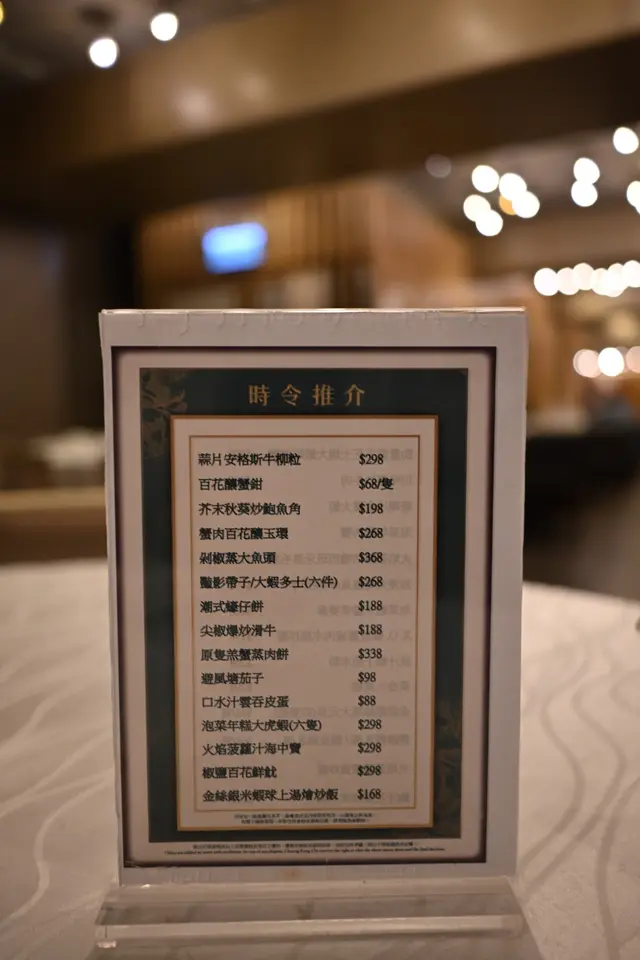 時令推介
蒜片安格斯牛柳粒 $298
百花釀蟹鉗 $68/隻
芥末秋葵炒鮑魚角 $198
蟹肉百花釀玉環 $268
剁椒蒸大魚頭 $368
豔影帶子/大蝦多士(六件) $268
潮式蠔仔餅 $188
尖椒爆炒滑牛 $188
原隻羔蟹蒸肉餅 $338
避風塘茄子 $98
口水汁雲吞皮蛋 $88
泡菜年糕大虎蝦(六隻) $298
火焰菠蘿汁海中寶 $298
椒鹽百花鮮魷 $298
金絲銀米蝦球上湯燴炒飯 $168